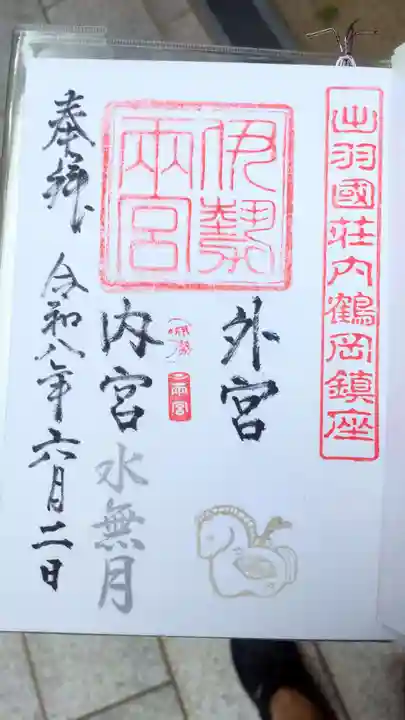 出羽國荘内鶴岡鎮座
伊勢
両宮
外宮
伊勢
両宮
内宮
水無月
奉拝
令和八年六月二日